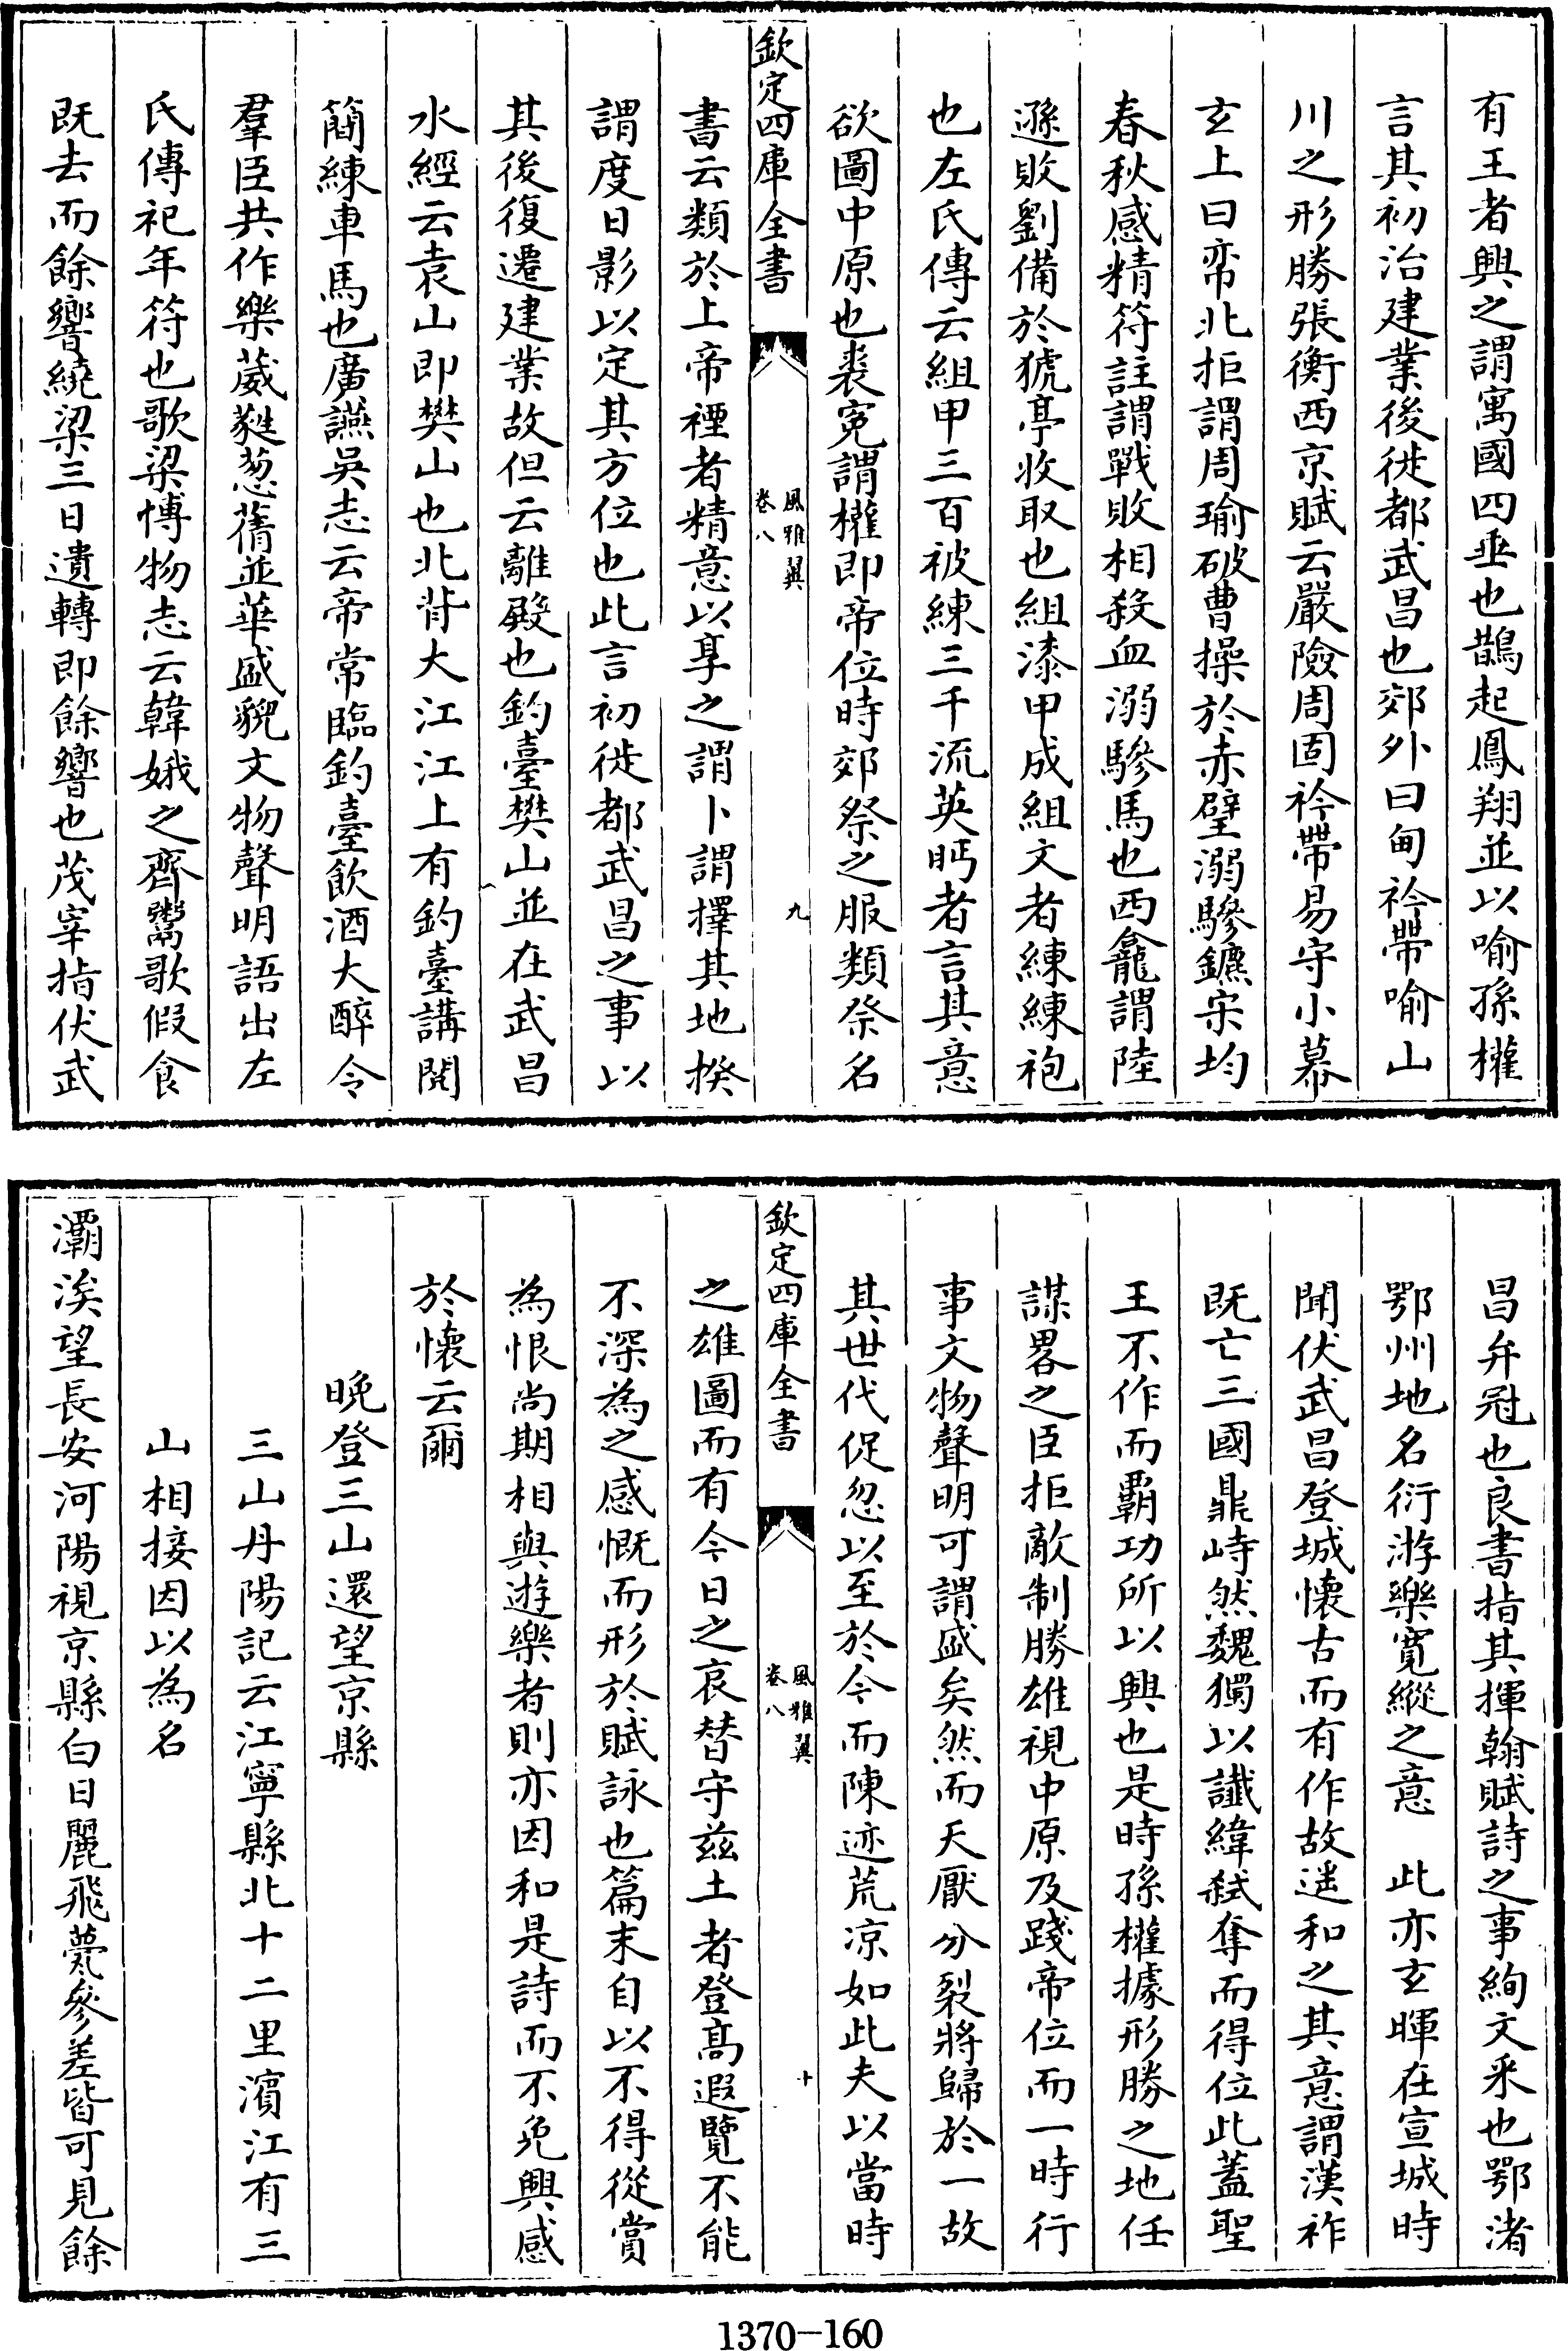 有王者興之謂寓國四垂也鵲起鳳翔並以喻孫權
言其初治建業後徙都武昌也郊外曰甸衿帶喻山
川之形勝張衡西京賦云嚴險周固衿帶易守小幕
玄上曰帟北拒謂周瑜破曹操於赤壁溺驂鑣宋均
春秋感精符註謂戰敗相殺血溺驂馬也西龕謂陸
遜敗劉備於猇亭收取也組漆甲成組文者練練袍
也左氏傳云組甲三百被練三千流英眄者言其意
欲圖中原也裘冕謂權即帝位時郊祭之服類祭名
欽定四庫全書
風雅翼
卷八
九
書云類於上帝禋者精意以享之謂卜謂擇其地揆
謂度日影以定其方位也此言初徙都武昌之事以
其後復遷建業故但云離殿也釣臺樊山並在武昌
水經云袁山即樊山也北背大江江上有釣臺講閱
簡練車馬也廣讌吳志云帝常臨釣臺飲酒大醉令
羣臣共作樂葳蕤葱蒨並華盛貌文物聲明語出左
氏傳祀年符也歌梁博物志云韓娥之齊鬻歌假食
既去而餘響繞梁三日遺轉即餘響也茂宰指伏武
昌弁冠也良書指其揮翰賦詩之事絢文采也鄂渚
鄂州地名衍游樂寬縱之意 此亦玄暉在宣城時
聞伏武昌登城懷古而有作故遥和之其意謂漢祚
既亡三國鼎峙然魏獨以讖緯弒奪而得位此蓋聖
王不作而霸功所以興也是時孫權據形勝之地任
謀畧之臣拒敵制勝雄視中原及踐帝位而一時行
事文物聲明可謂盛矣然而天厭分裂將歸於一故
其世代促忽以至於今而陳迹荒凉如此夫以當時
欽定四庫全書
風雅翼
卷八
十
之雄圖而有今日之哀替守兹土者登高遐覽不能
不深為之感慨而形於賦詠也篇末自以不得從賞
為恨尚期相與遊樂者則亦因和是詩而不免興感
於懷云爾
晚登三山還望京縣
三山丹陽記云江寧縣北十二里濱江有三
山相接因以為名
灞涘望長安河陽視京縣白日麗飛甍參差皆可見餘
1370-160